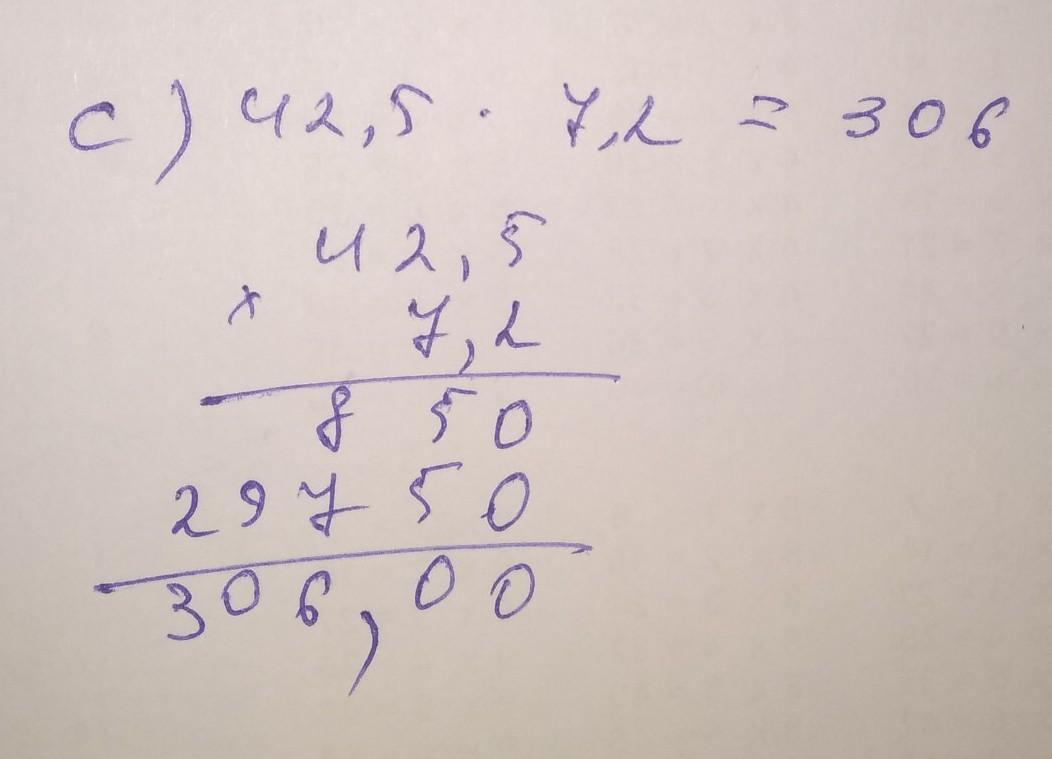 c) 42,5 · 7,2 = 306
42,5
× 7,2
850
29750
306,00